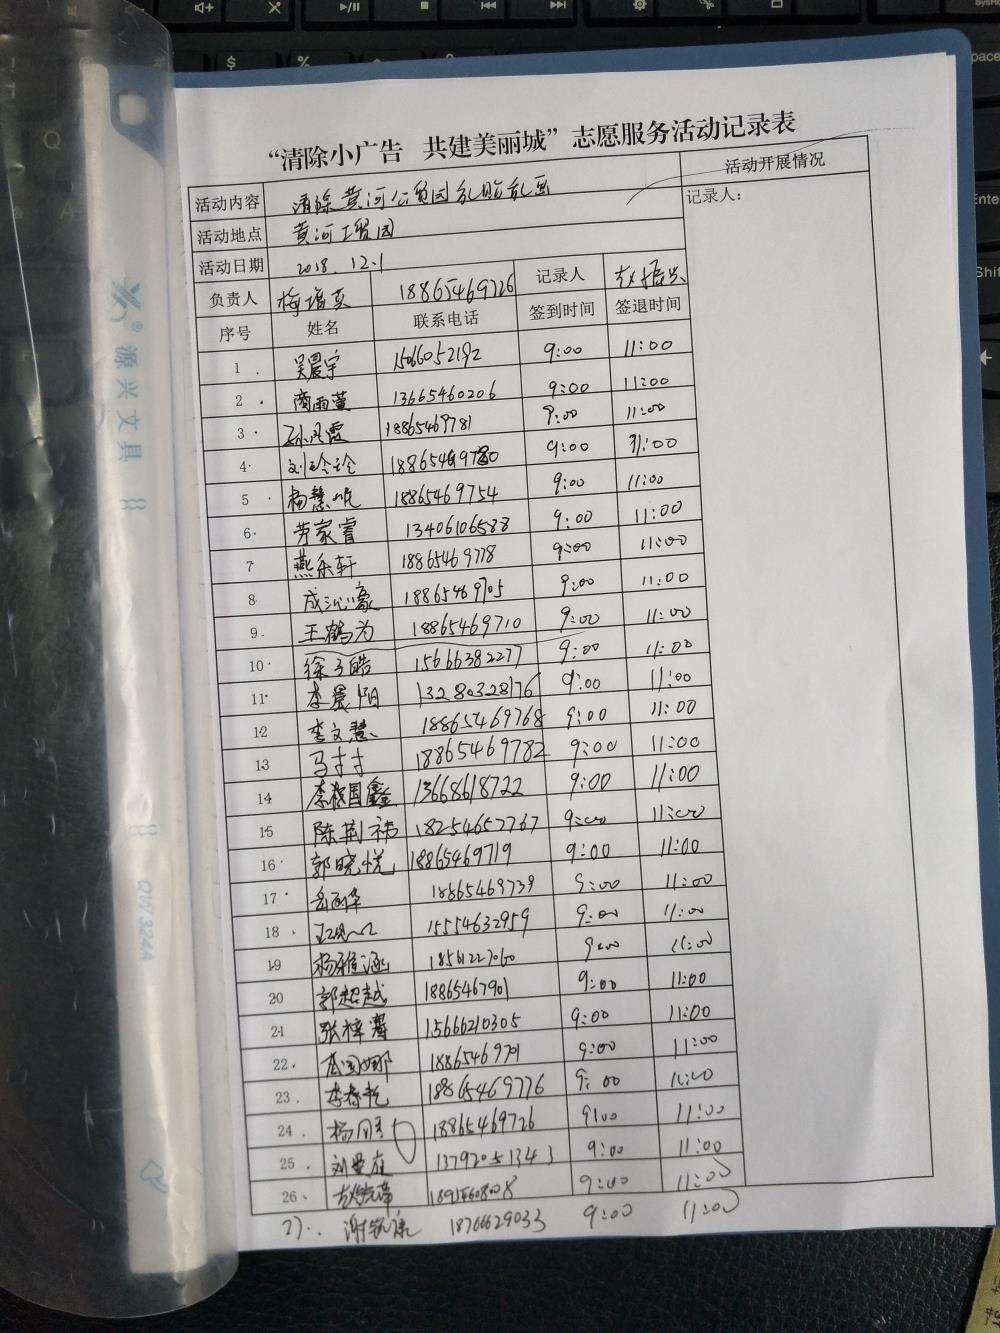 “清除小广告 共建美丽城”志愿服务活动记录表
活动内容 清除黄河公贸园乱贴乱画 活动开展情况
活动地点 黄河工贸园 记录人：
活动日期 2018.12.1
负责人 18865469726 记录人 赵振兴
序号 姓名 联系电话 签到时间 签退时间
1 吴晨宇 15066052192 9:00 11:00
2 商雨萱 13665460206 9:00 11:00
3 孙凤霞 18865469781 9:00 11:00
4 刘玲玲 9:00 11:00
5 杨慧 18865469754 9:00 11:00
6 劳家睿 13406106588 9:00 11:00
7 燕乐轩 18865469778 9:00 11:00
8 成沁豪 18865469705 9:00 11:00
9 王鹤为 18865469710 9:00 11:00
10 徐子皓 15666382277 9:00 11:00
11 李晨阳 13280328176 9:00 11:00
12 李文慧 18865469768 9:00 11:00
13 马寸寸 18865469782 9:00 11:00
14 国鑫 13668618722 9:00 11:00
15 陈荆祎 18254657767 9:00 11:00
16 郭晓悦 18865469719 9:00 11:00
17 18865469739 9:00 11:00
18 15554632959 9:00 11:00
19 杨雅涵 18561227060 9:00 11:00
20 郭超越 18865467901 9:00 11:00
21 张梓馨 15666210305 9:00 11:00
22 国娜 18865469701 9:00 11:00
23 李春艳 18865469776 9:00 11:00
24 杨 18865469726 9:00 11:00
25 刘 13792051343 9:00 11:00
26 赵 9:00 11:00
27 谢 18766629033 9:00 11:00
源兴文具
QW324A